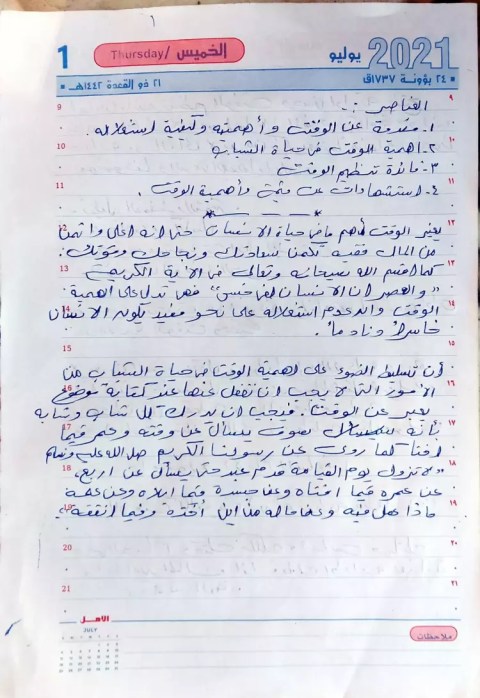 1
الخميس / Thursday
يوليو
2021
٢١ ذو القعدة ١٤٤٢هـ
٢٤ بؤونة ١٧٣٧ق
العناصر :-
١- مقدمة عن الوقت وأهميته وكيفية استغلاله.
٢- اهمية الوقت في حياة الشباب
٣- فائدة تنظيم الوقت
٤- استشهادات عن وأهمية الوقت.
يعتبر الوقت أهم ما في حياة الانسان حتى انه اغلى واثمن
من المال ففيه تكمن سعادتك ونجاحك وقوتك.
كما اقسم الله سبحانه وتعالى في الاية الكريمة
"والعصر ان الانسان لفي خسر" فهي تدل على اهمية
الوقت وان عدم استغلاله على نحو مفيد يكون الانسان
خاسرا ونادما.
أن تسليط الضوء على اهمية الوقت في حياة الشباب من
الامور التي لا يجب ان نغفل عنها عند كتابة موضوع
تعبير عن الوقت. فيجب ان يدرك كل شاب وشابة
بأنه سوف يسأل عن وقته وعمره فيما
افناه كما روى عن رسولنا الكريم صلى الله عليه وسلم
"لا تزول يوم القيامة قدم عبد حتى يسأل عن اربع،
عن عمره فيما افناه وعن جسده فيما ابلاه وعن علمه
ماذا عمل فيه وعن ماله من اين أكتسبه وفيما انفقه"
الأهــل
JULY
ملاحظات